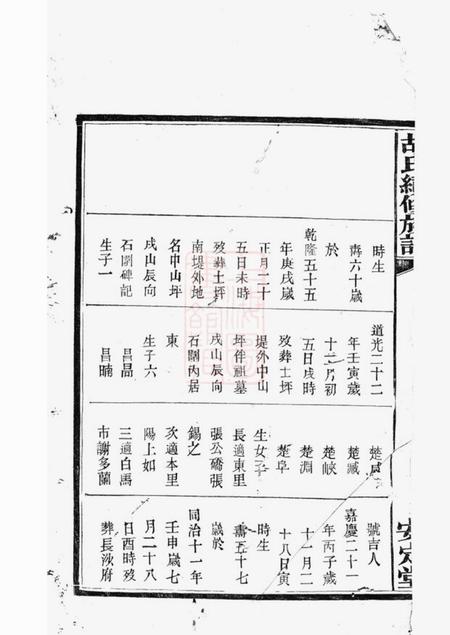 胡氏續修族譜
安定堂
時生
壽六十歲
於
乾隆五十五
年庚戌歲
正月二十
五日未時
歿葬土坪
南堤外地
名中山坪
戌山辰向
石關碑記
生子一
道光二十二
年壬寅歲
十二月初
五日戌時
歿葬土坪
堤外中山
坪伴祖墓
戌山辰向
石關內居
東
生子六
昌晶
昌暔
楚
楚臧
楚峽
楚淵
楚卓
生女子
長適東里
張公礄張
錫之
次適本里
陽上如
三適白馬
市謝多蘭
號吉人
嘉慶二十一
年丙子歲
十一月二
十八日寅
時生
壽五十七
歲於
同治十一年
壬申歲七
月二十八
日酉時歿
葬長沙府